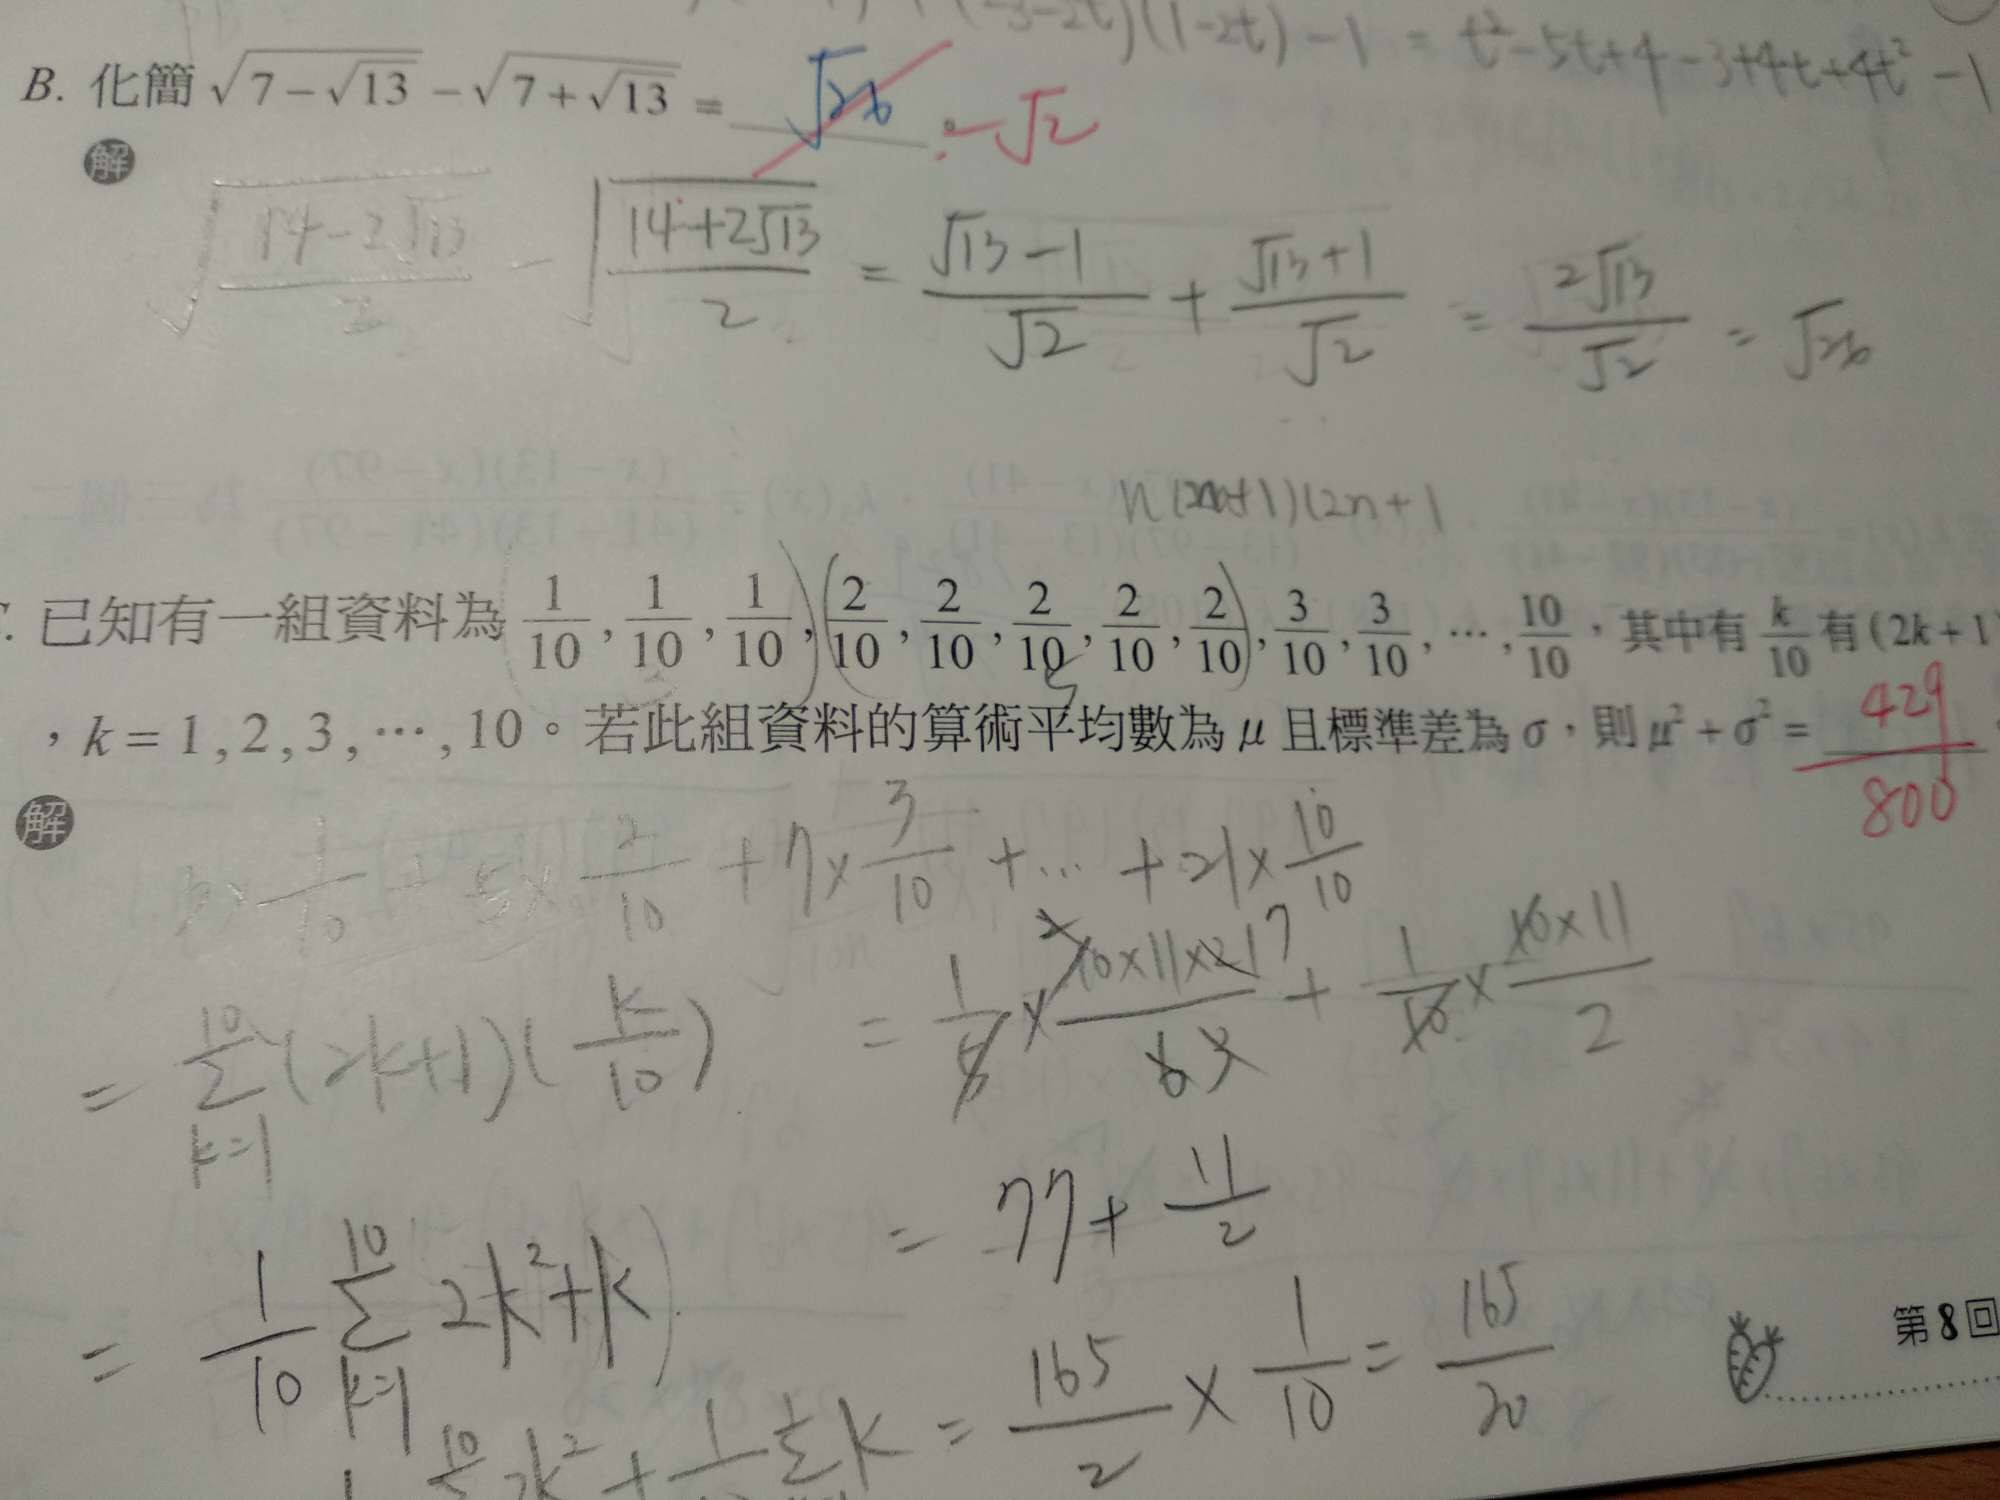 (-3-2t)(1-2t)-1 = t²-5t+4-3+4t+4t²-1
B. 化簡 √(7-√13) - √(7+√13) = √26 : -√2
解
√((14-2√13)/2) - √((14+2√13)/2) = (√13-1)/√2 + (√13+1)/√2 = 2√13/√2 = √26
n(2n+1)(2n+1
. 已知有一組資料為 1/10, 1/10, 1/10, 2/10, 2/10, 2/10, 2/10, 2/10, 3/10, 3/10, …, 10/10，其中有 k/10 有 (2k+1)
，k=1,2,3,…,10。若此組資料的算術平均數為 μ 且標準差為 σ，則 μ²+σ² = 429/800
解
3×1/10 + 5×2/10 + 7×3/10 + … + 21×10/10
= Σ(k=1→10) (2k+1)(k/10) = 1/5 × (10×11×21)/6 + 1/10 × (10×11)/2
= 77 + 11/2
= 1/10 Σ(k=1→10) 2k²+k)
Σ 2k² + Σ k = 165/2 × 1/10 = 165/20
第8回